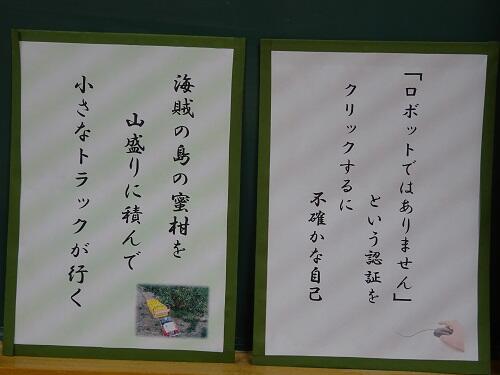 「ロボットではありません」
という認証を
クリックするに
不確かな自己
海賊の島の蜜柑を
山盛りに積んで
小さなトラックが行く